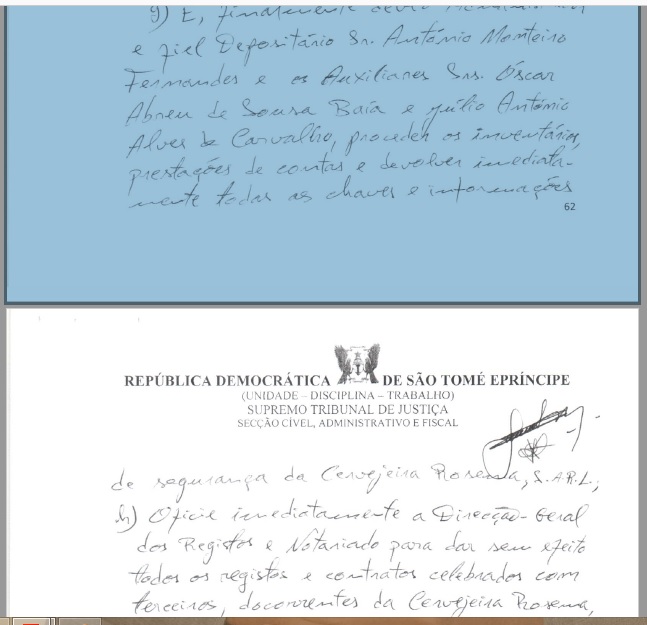 g) E, finalmente
e fiel Depositário Sr. António Monteiro
Fernandes e os Auxiliares Srs. Óscar
Abreu de Sousa Baía e Júlio António
Alves de Carvalho, proceder os inventários,
prestações de contas e devolver imediata-
mente todas as chaves e informações
62
REPÚBLICA DEMOCRÁTICA DE SÃO TOMÉ EPRÍNCIPE
(UNIDADE – DISCIPLINA – TRABALHO)
SUPREMO TRIBUNAL DE JUSTIÇA
SECÇÃO CÍVEL, ADMINISTRATIVO E FISCAL
de segurança da Cervejeira Rosema, S.A.R.L;
h) Oficie imediatamente a Direcção-Geral
dos Registos e Notariado para dar sem efeito
todos os registos e contratos celebrados com
terceiros, docorrentes da Cervejeira Rosema,